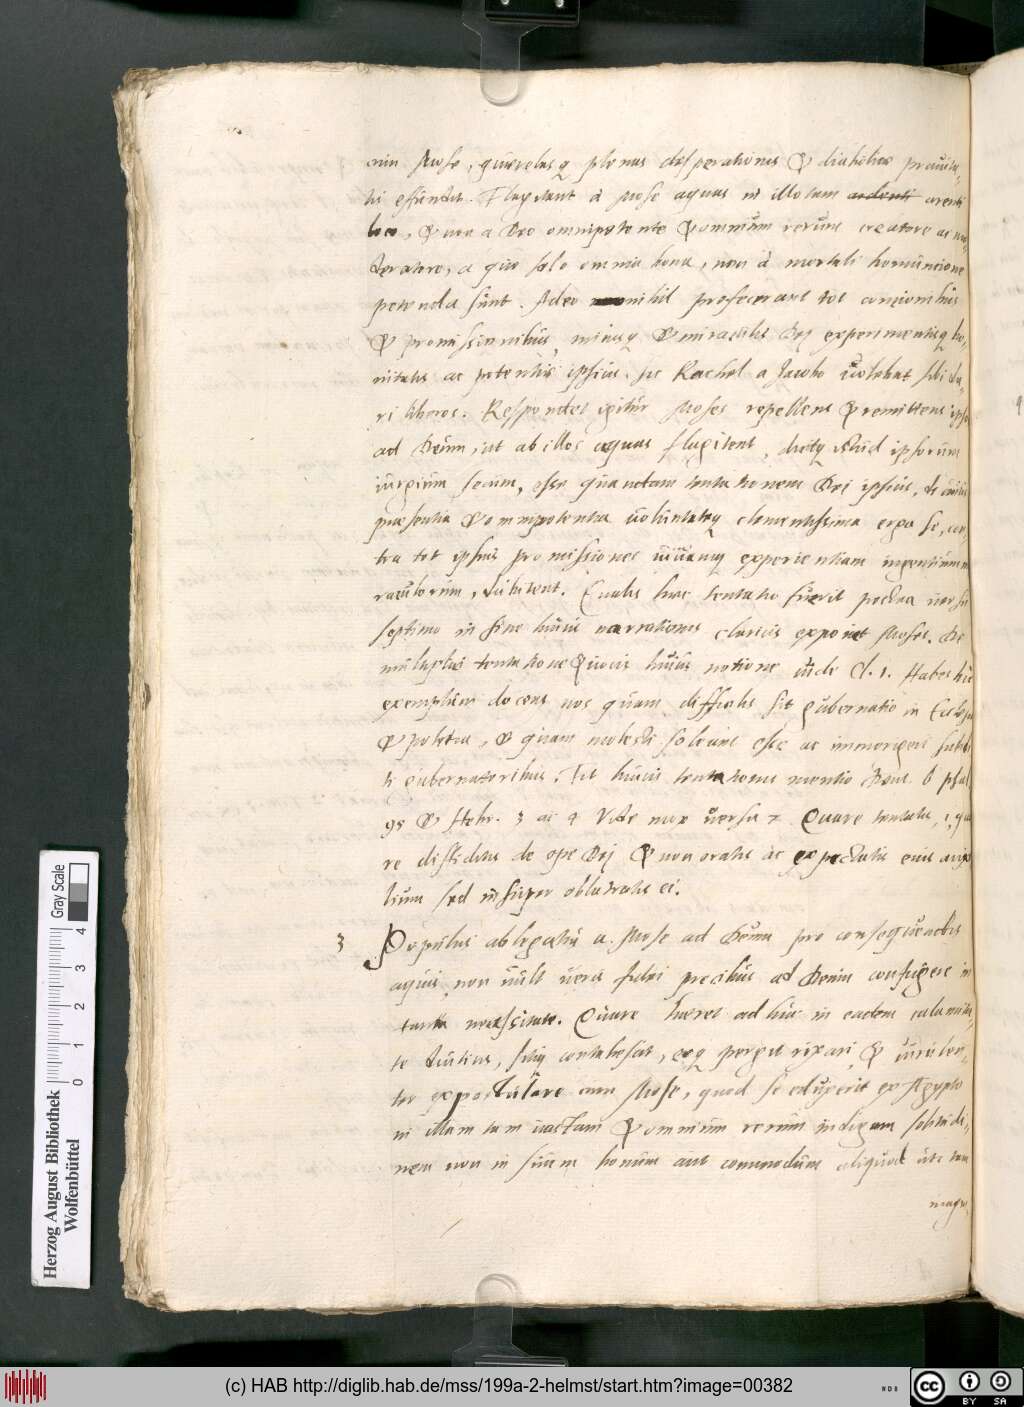 cum Mose, querelasq plenas desperationis & diabolicae pravita-
tis effundit. Flagitant à Mose aquas in illo tam ardenti arenti
loco, & non a Deo omnipotente & omnium rerum creatore ac mo-
deratore, a quo solo omnia bona, non à mortali homuncione
petenda sunt. Adeo nihil profecerant tot concionibus
& promissionibus, minisq & miraculis Dej experimentisq bo-
nitatis ac potentiae ipsius. sic Rachel a Jacobo volebat sibi da-
ri liberos. Respondet igitur Moses repellens & remittens ipsos
ad Deum, ut ab illo aquas flagitent, dicitq istud ipsorum
iurgium secum, esse quandam tentationem Dei ipsius, de cuius
praesentia & omnipotentia voluntateq clementissima erga se, con-
tra tot ipsius promissiones suamq experientiam ingentium mi-
raculorum, dubitent. Qualis haec tentatio fuerit postea versu
septimo in fine huius narrationis clarius exponet Moses. De
multiplici tentatione & vocis huius notione vide C. 1. Habes hic
exemplum docens nos quam difficilis sit gubernatio in Ecclesia
& politia, & quam molesti soleant esse ac immorigeri subdi-
ti gubernatoribus. Fit huius tentationis mentio Deut. 6 psal.
95 & Hebr. 3 ac 4 Vide mox versu 7. Quare tentatis, i, qua-
re diffiditis de ope Dej & non oratis ac expectatis eius auxi-
lium sed insuper oblatratis ei.
3 Populus ablegatus a Mose ad Deum pro consequendis
aquis, non vult veris fidei precibus ad Deum confugere in
tanta necessitate. Quare haeret adhuc in eadem calamita-
te diutius, sitiq contabescit, eoq pergit rixari & virulen-
ter expostulare cum Mose, quod se eduxerit ex Aegypto
in illam tam vastam & omnium rerum indigam solitudi-
nem non in suum bonum aut commodum aliquod ut tam
magn-
Herzog August Bibliothek
Wolfenbüttel
0 1 2 3 4
Gray Scale
(c) HAB http://diglib.hab.de/mss/199a-2-helmst/start.htm?image=00382
cc BY SA